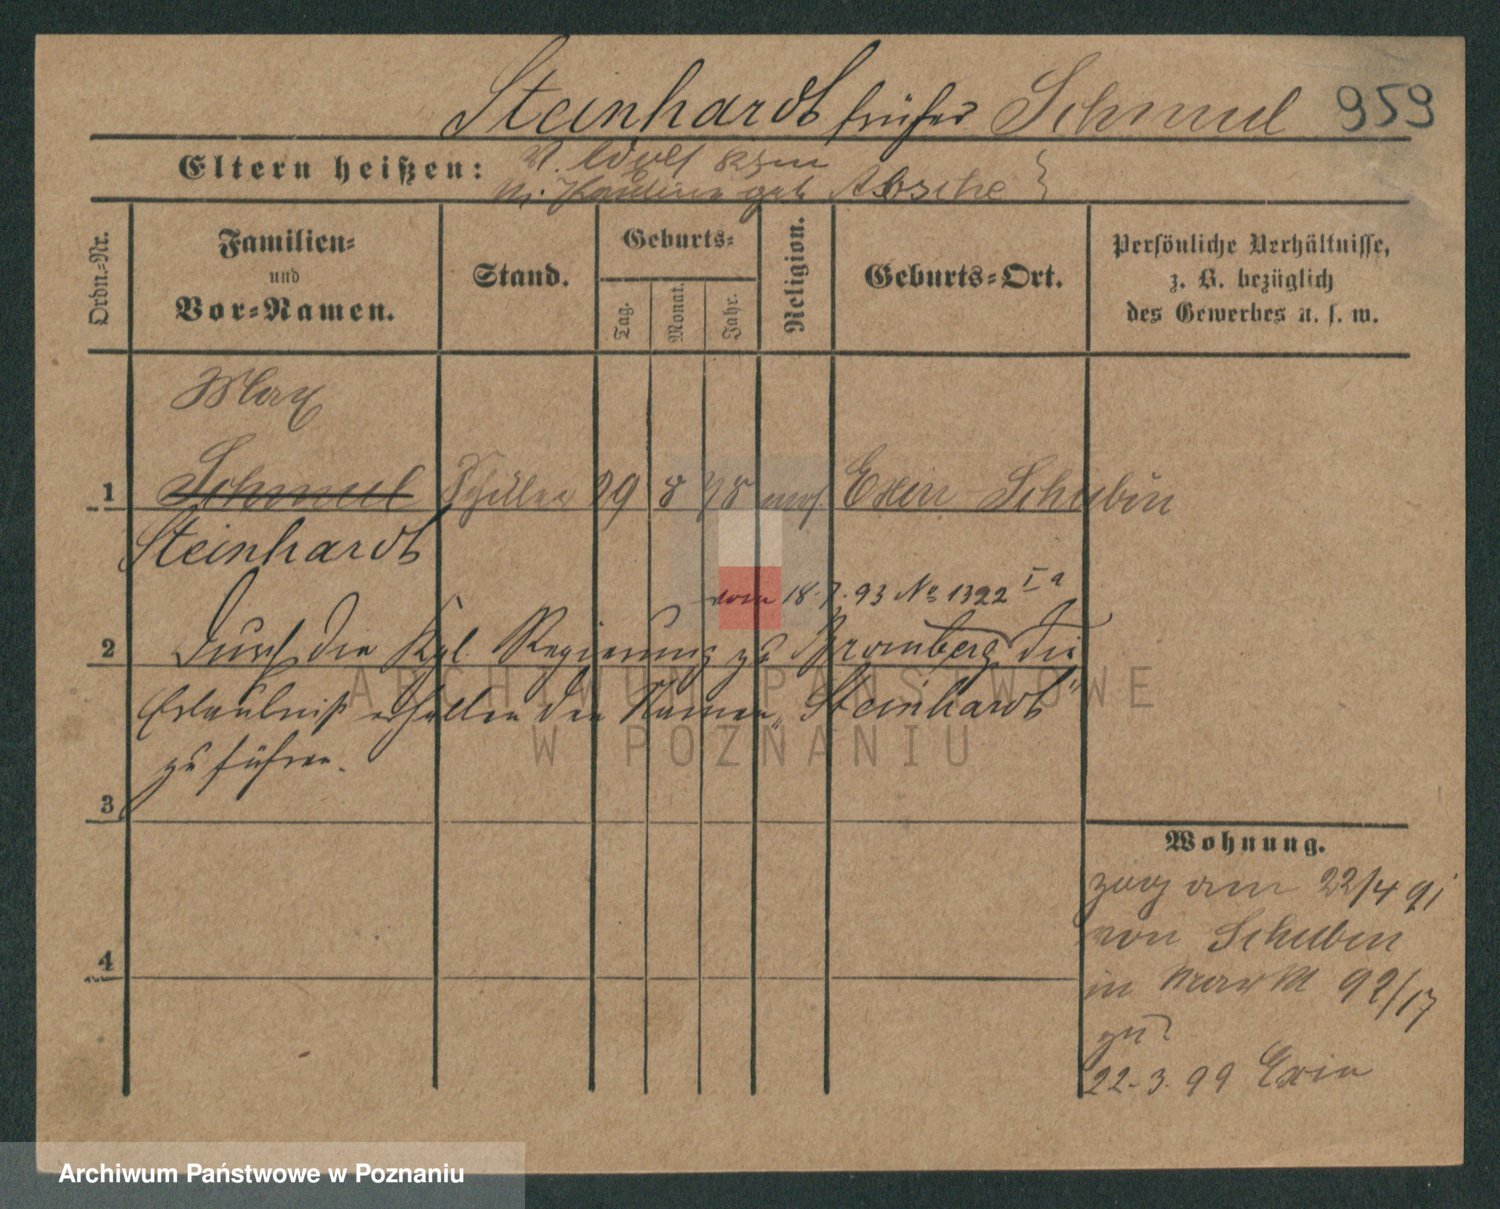 Steinhardt früher Schmul 959
Eltern heißen: V. Wolf Kzin
M. Pauline geb Absche
Ordn.-Nr.
Familien-
und
Vor-Namen.
Stand.
Geburts-
Tag.
Monat.
Jahr.
Religion.
Geburts-Ort.
Persönliche Verhältnisse,
z. B. bezüglich
des Gewerbes u. s. w.
Max
1 Schmul Schüler 29 8 78 mos. Exin - Schubin
Steinhardt
vom 18.7.93 No 1322 I a
2 Durch die Kgl. Regierung zu Bromberg die
Erlaubniß erhalten den Namen „Steinhardt“
zu führen.
3
4
Wohnung.
zog am 22/4 91
von Schubin
in Markt 92/17
zu
22.3.99 Exin
ARCHIWUM PAŃSTWOWE
W POZNANIU
Archiwum Państwowe w Poznaniu